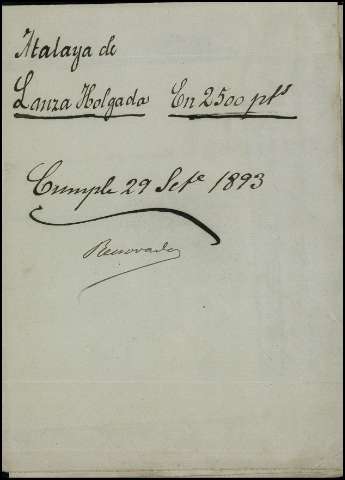 Atalaya de
Lanza Holgada En 2500 pts
Cumple 29 Sete 1893
Renovado